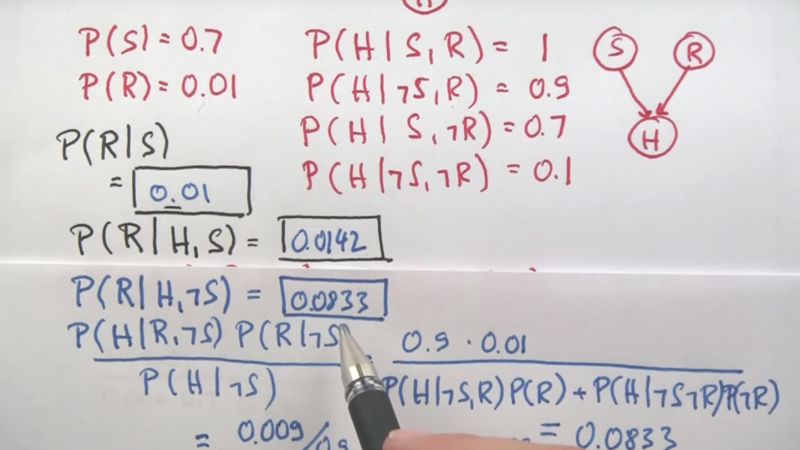 H
P(S) = 0.7
P(R) = 0.01
P(H| S, R) = 1
P(H|¬S, R) = 0.9
P(H| S, ¬R) = 0.7
P(H|¬S, ¬R) = 0.1
S R
H
P(R|S)
= 0.01
P(R|H, S) = 0.0142
P(R|H, ¬S) = 0.0833
P(H|R, ¬S) P(R|¬S
P(H|¬S)
0.9 · 0.01
P(H|¬S, R)P(R) + P(H|¬S ¬R)P(¬R)
= 0.009/
= 0.0833